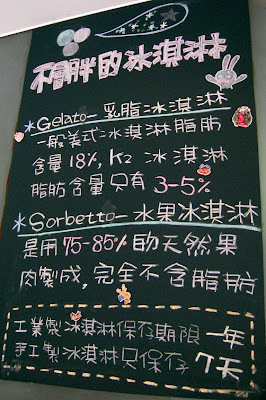 不會胖的冰淇淋
*Gelato-乳脂冰淇淋
一般美式冰淇淋脂肪
含量18%, K2 冰淇淋
脂肪含量只有 3-5%
*Sorbetto-水果冰淇淋
是用75-85%的天然果
肉製成,完全不含脂肪
工業製冰淇淋保存期限一年
手工製冰淇淋只保存7天